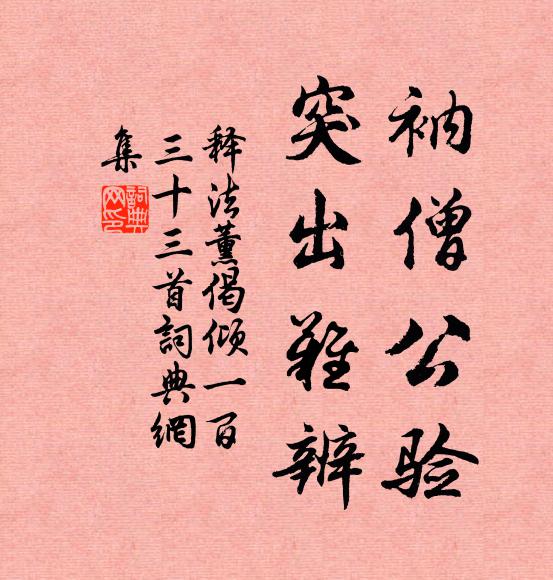 衲僧公验
突出难辨
释法薰偈倾一百
三十三首詞典網
集
詞典
网印